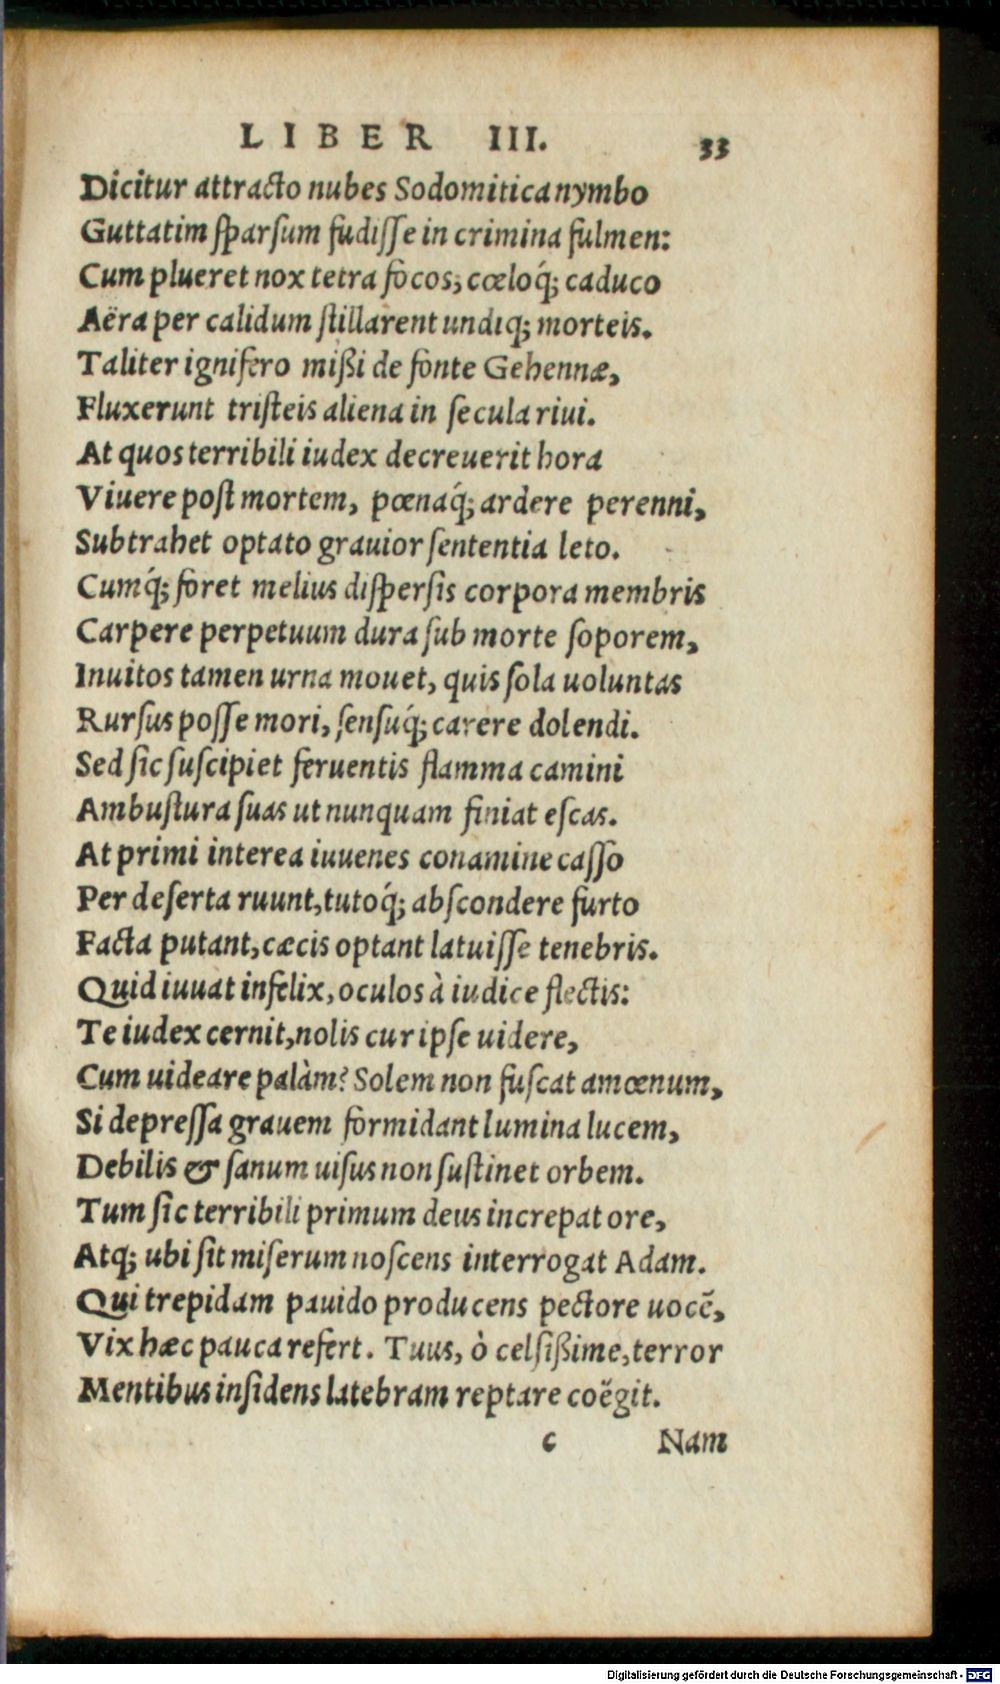 LIBER III. 33
Dicitur attracto nubes Sodomitica nymbo
Guttatim sparsum fudisse in crimina fulmen:
Cum plueret nox tetra focos, cœloq́; caduco
Aëra per calidum stillarent undiq; morteis.
Taliter ignifero mißi de fonte Gehennæ,
Fluxerunt tristeis aliena in secula riui.
At quos terribili iudex decreuerit hora
Viuere post mortem, pœnaq́; ardere perenni,
Subtrahet optato grauior sententia leto.
Cumq́; foret melius dispersis corpora membris
Carpere perpetuum dura sub morte soporem,
Inuitos tamen urna mouet, quis sola uoluntas
Rursus posse mori, sensuq́; carere dolendi.
Sed sic suscipiet feruentis flamma camini
Ambustura suas ut nunquam finiat escas.
At primi interea iuuenes conamine casso
Per deserta ruunt, tutoq́; abscondere furto
Facta putant, cæcis optant latuisse tenebris.
Quid iuuat infelix, oculos à iudice flectis:
Te iudex cernit, nolis cur ipse uidere,
Cum uideare palàm? Solem non fuscat amœnum,
Si depressa grauem formidant lumina lucem,
Debilis & sanum uisus non sustinet orbem.
Tum sic terribili primum deus increpat ore,
Atq; ubi sit miserum noscens interrogat Adam.
Qui trepidam pauido producens pectore uocẽ,
Vix hæc pauca refert. Tuus, ò celsißime, terror
Mentibus insidens latebram reptare coëgit.
c Nam
Digitalisierung gefördert durch die Deutsche Forschungsgemeinschaft - DFG